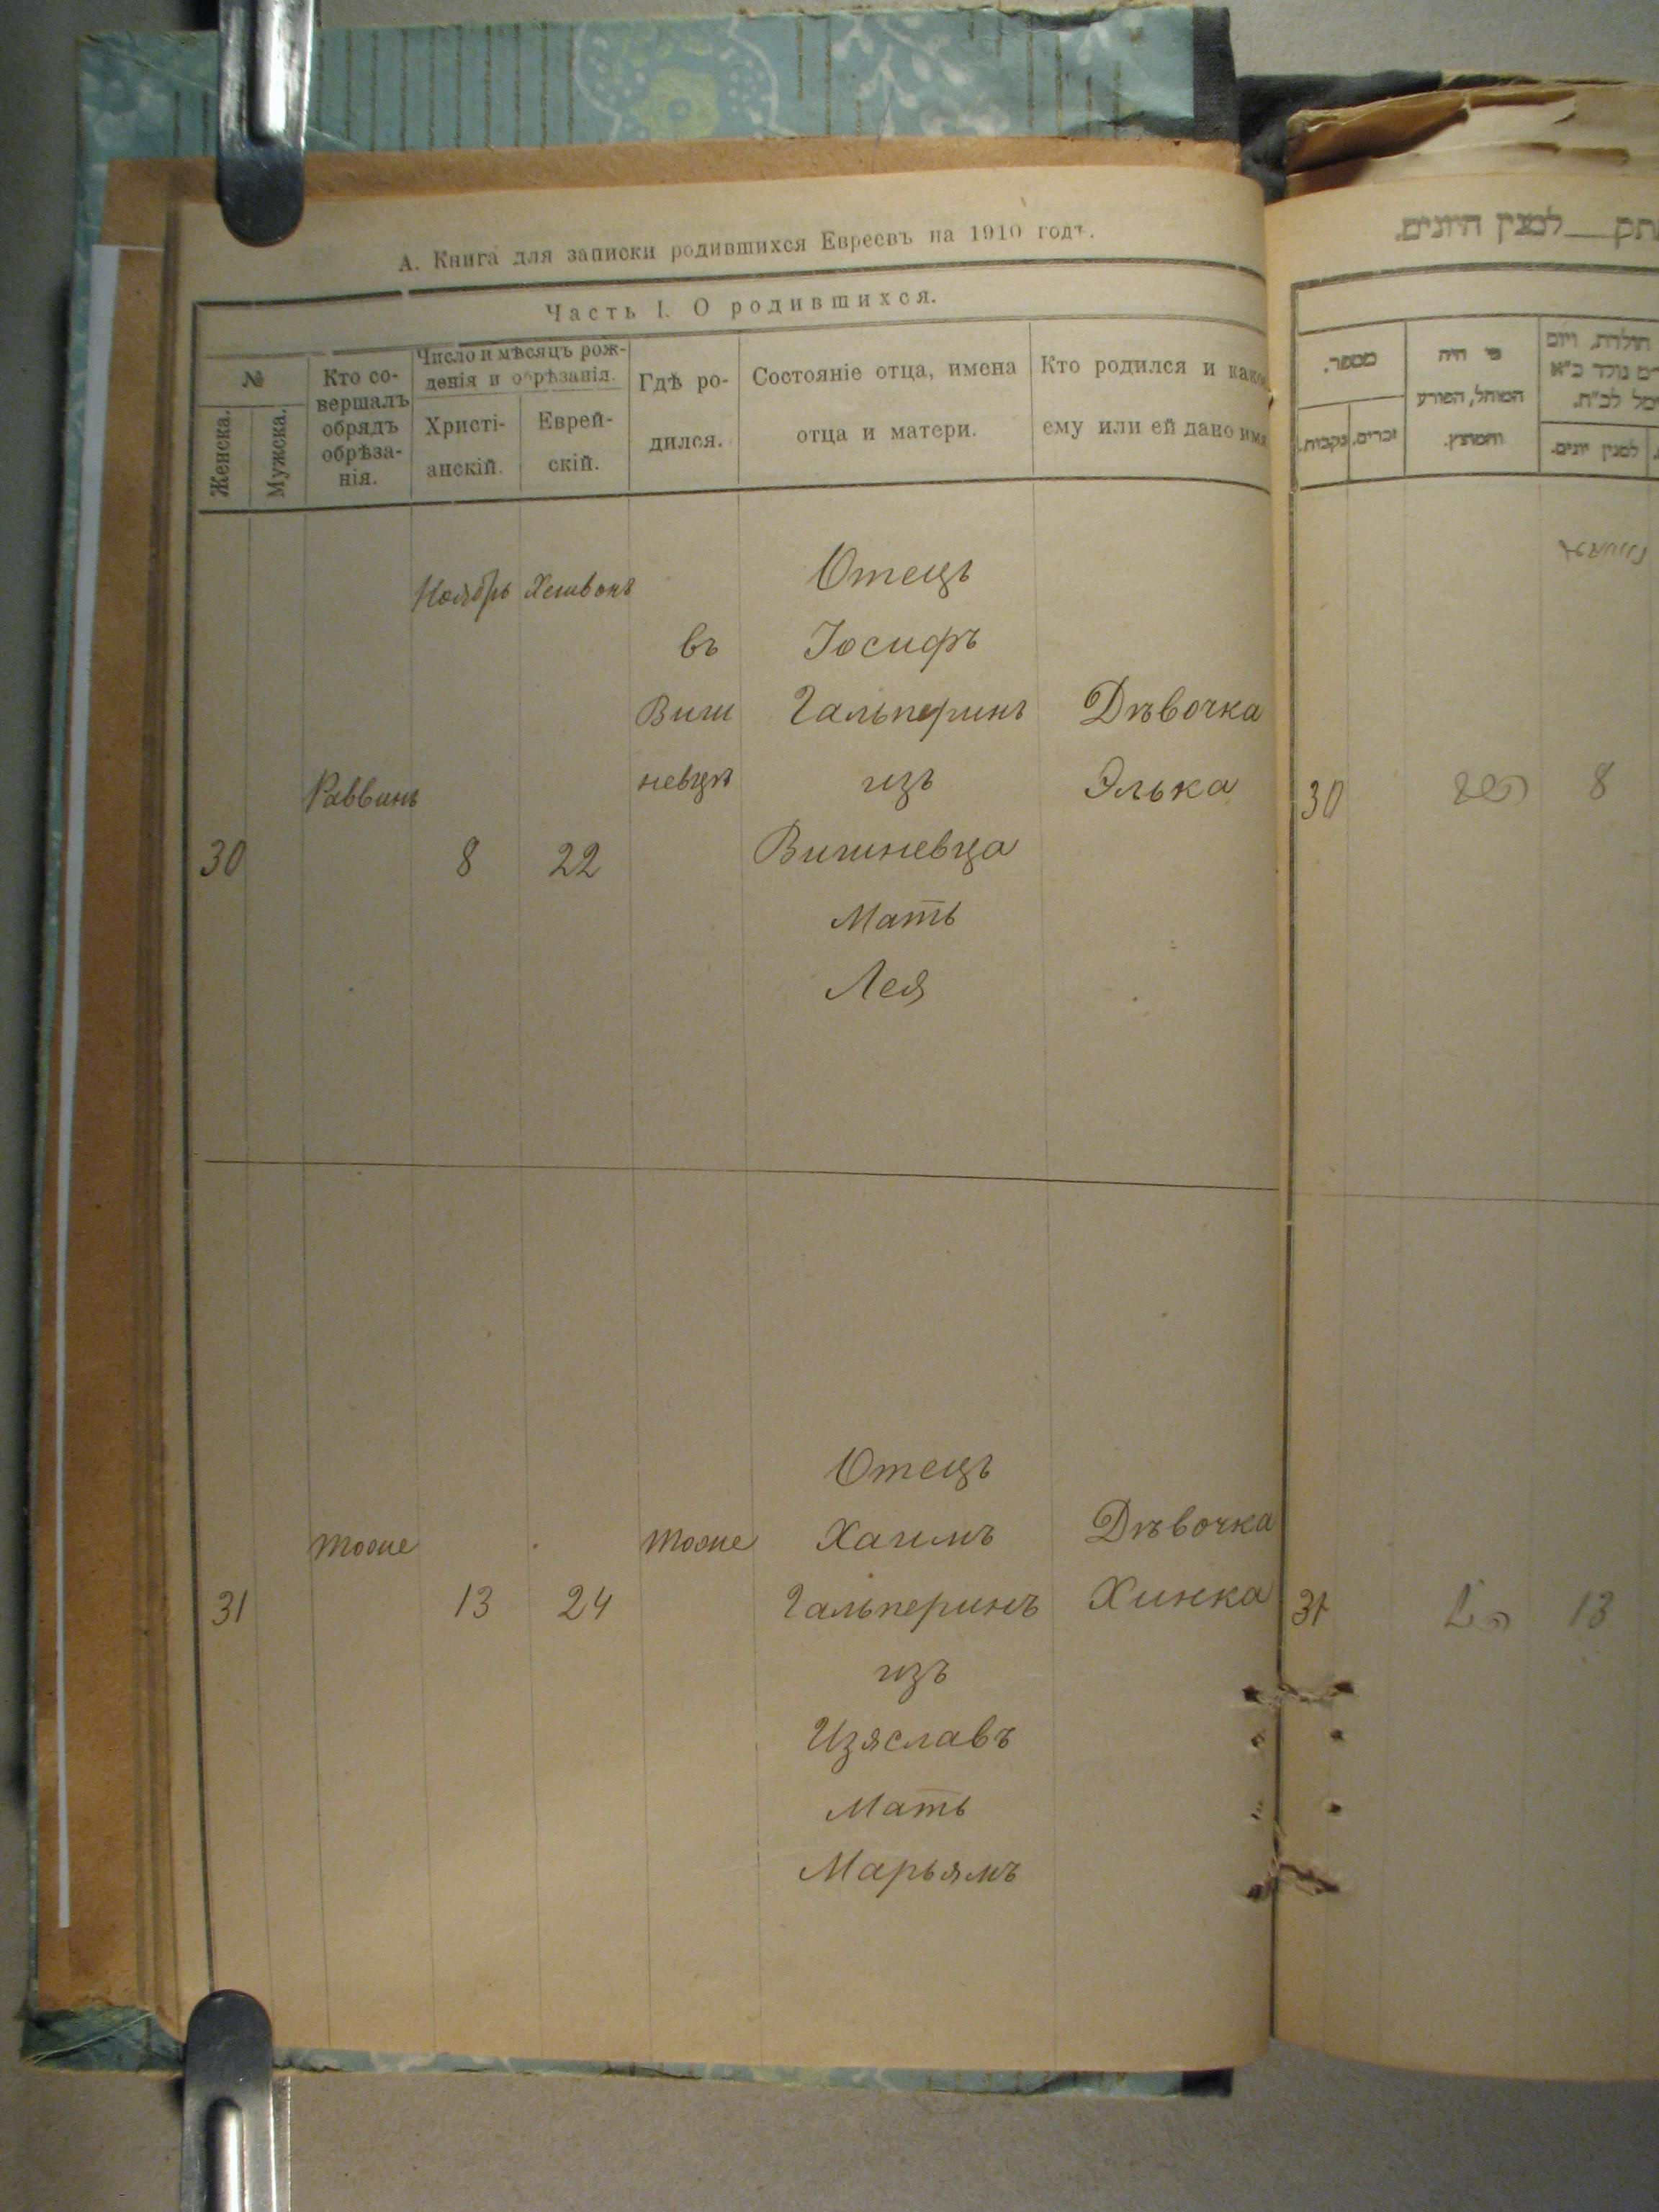 А. Книга для записки родившихся Евреевъ на 1910 годъ.
Часть I. О родившихся.
№
Женска.
Мужска.
Кто со-
вершалъ
обрядъ
обрѣза-
нія.
Число и мѣсяцъ рож-
денія и обрѣзанія.
Христі-
анскій.
Еврей-
скій.
Гдѣ ро-
дился.
Состояніе отца, имена
отца и матери.
Кто родился и какое
ему или ей дано имя
30
Раввинъ
Ноябрь
8
Хешвонъ
22
въ
Виш
невцѣ
Отецъ
Іосифъ
Гальперинъ
изъ
Вишневца
Мать
Лея
Дѣвочка
Элька
31
тоже
13
24
тоже
Отецъ
Хаимъ
Гальперинъ
изъ
Изяславъ
Мать
Марьямъ
Дѣвочка
Хинка
למנין היונים.
מספר.
זכרים.
נקבות.
מי היה
המוהל, הפורע
והמוצץ.
למנין יונים.
30
8
31
13